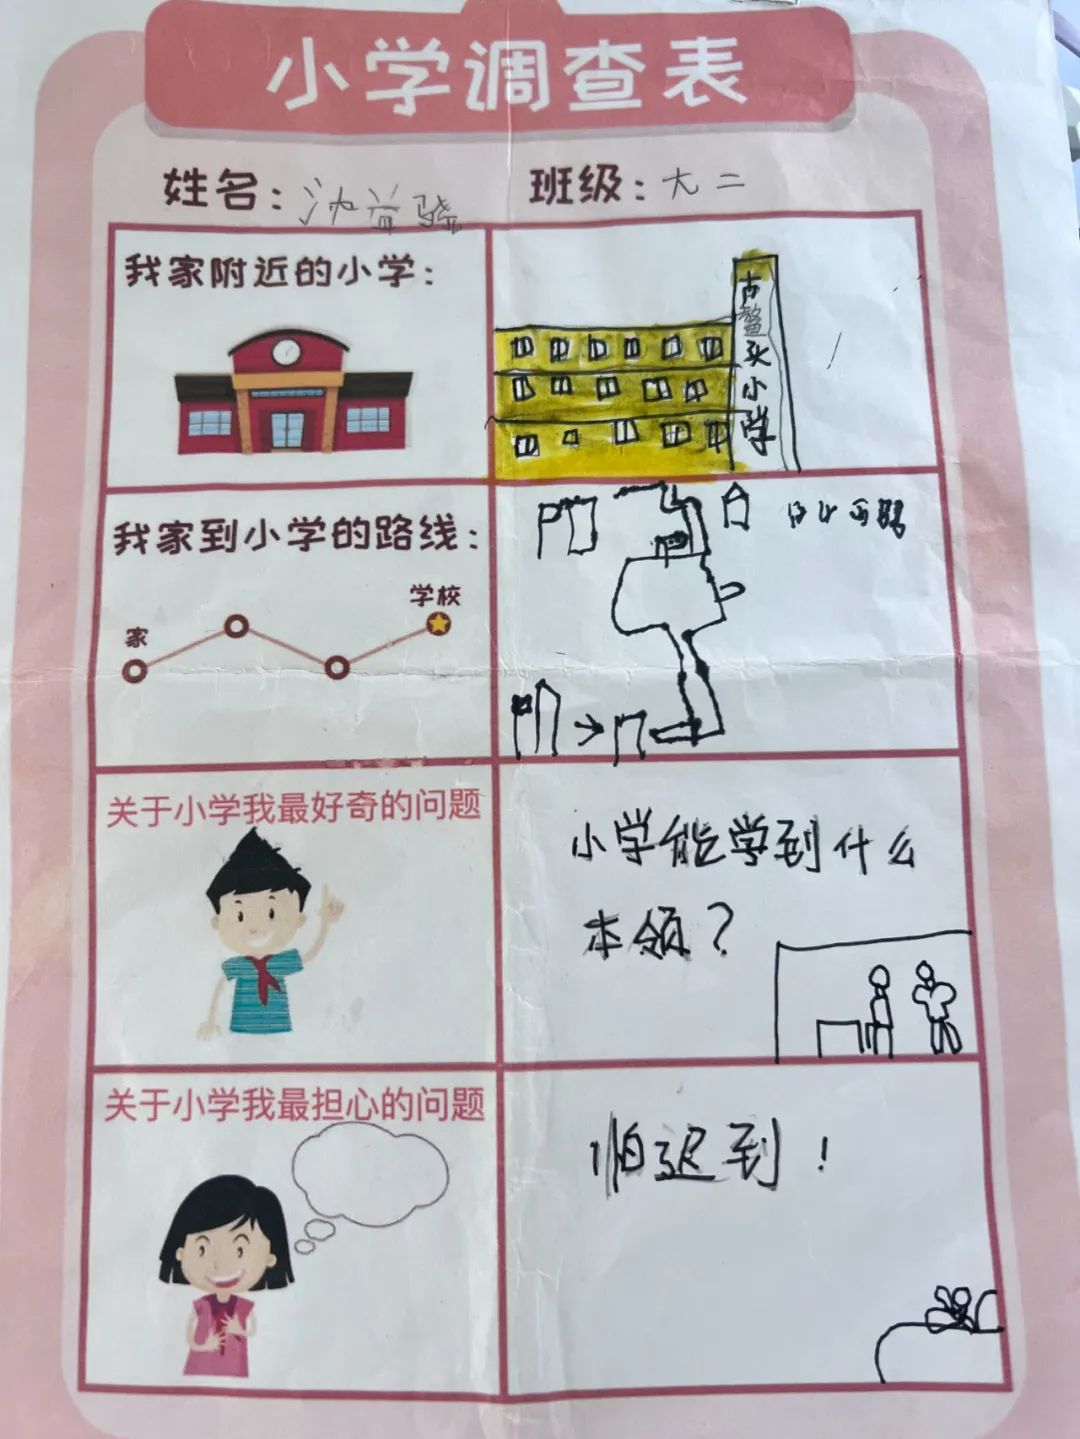 小学调查表
姓名：沈益骁 班级：大二
我家附近的小学：
古鳌头小学
我家到小学的路线：
家
学校
关于小学我最好奇的问题
小学能学到什么
本领？
关于小学我最担心的问题
怕迟到！